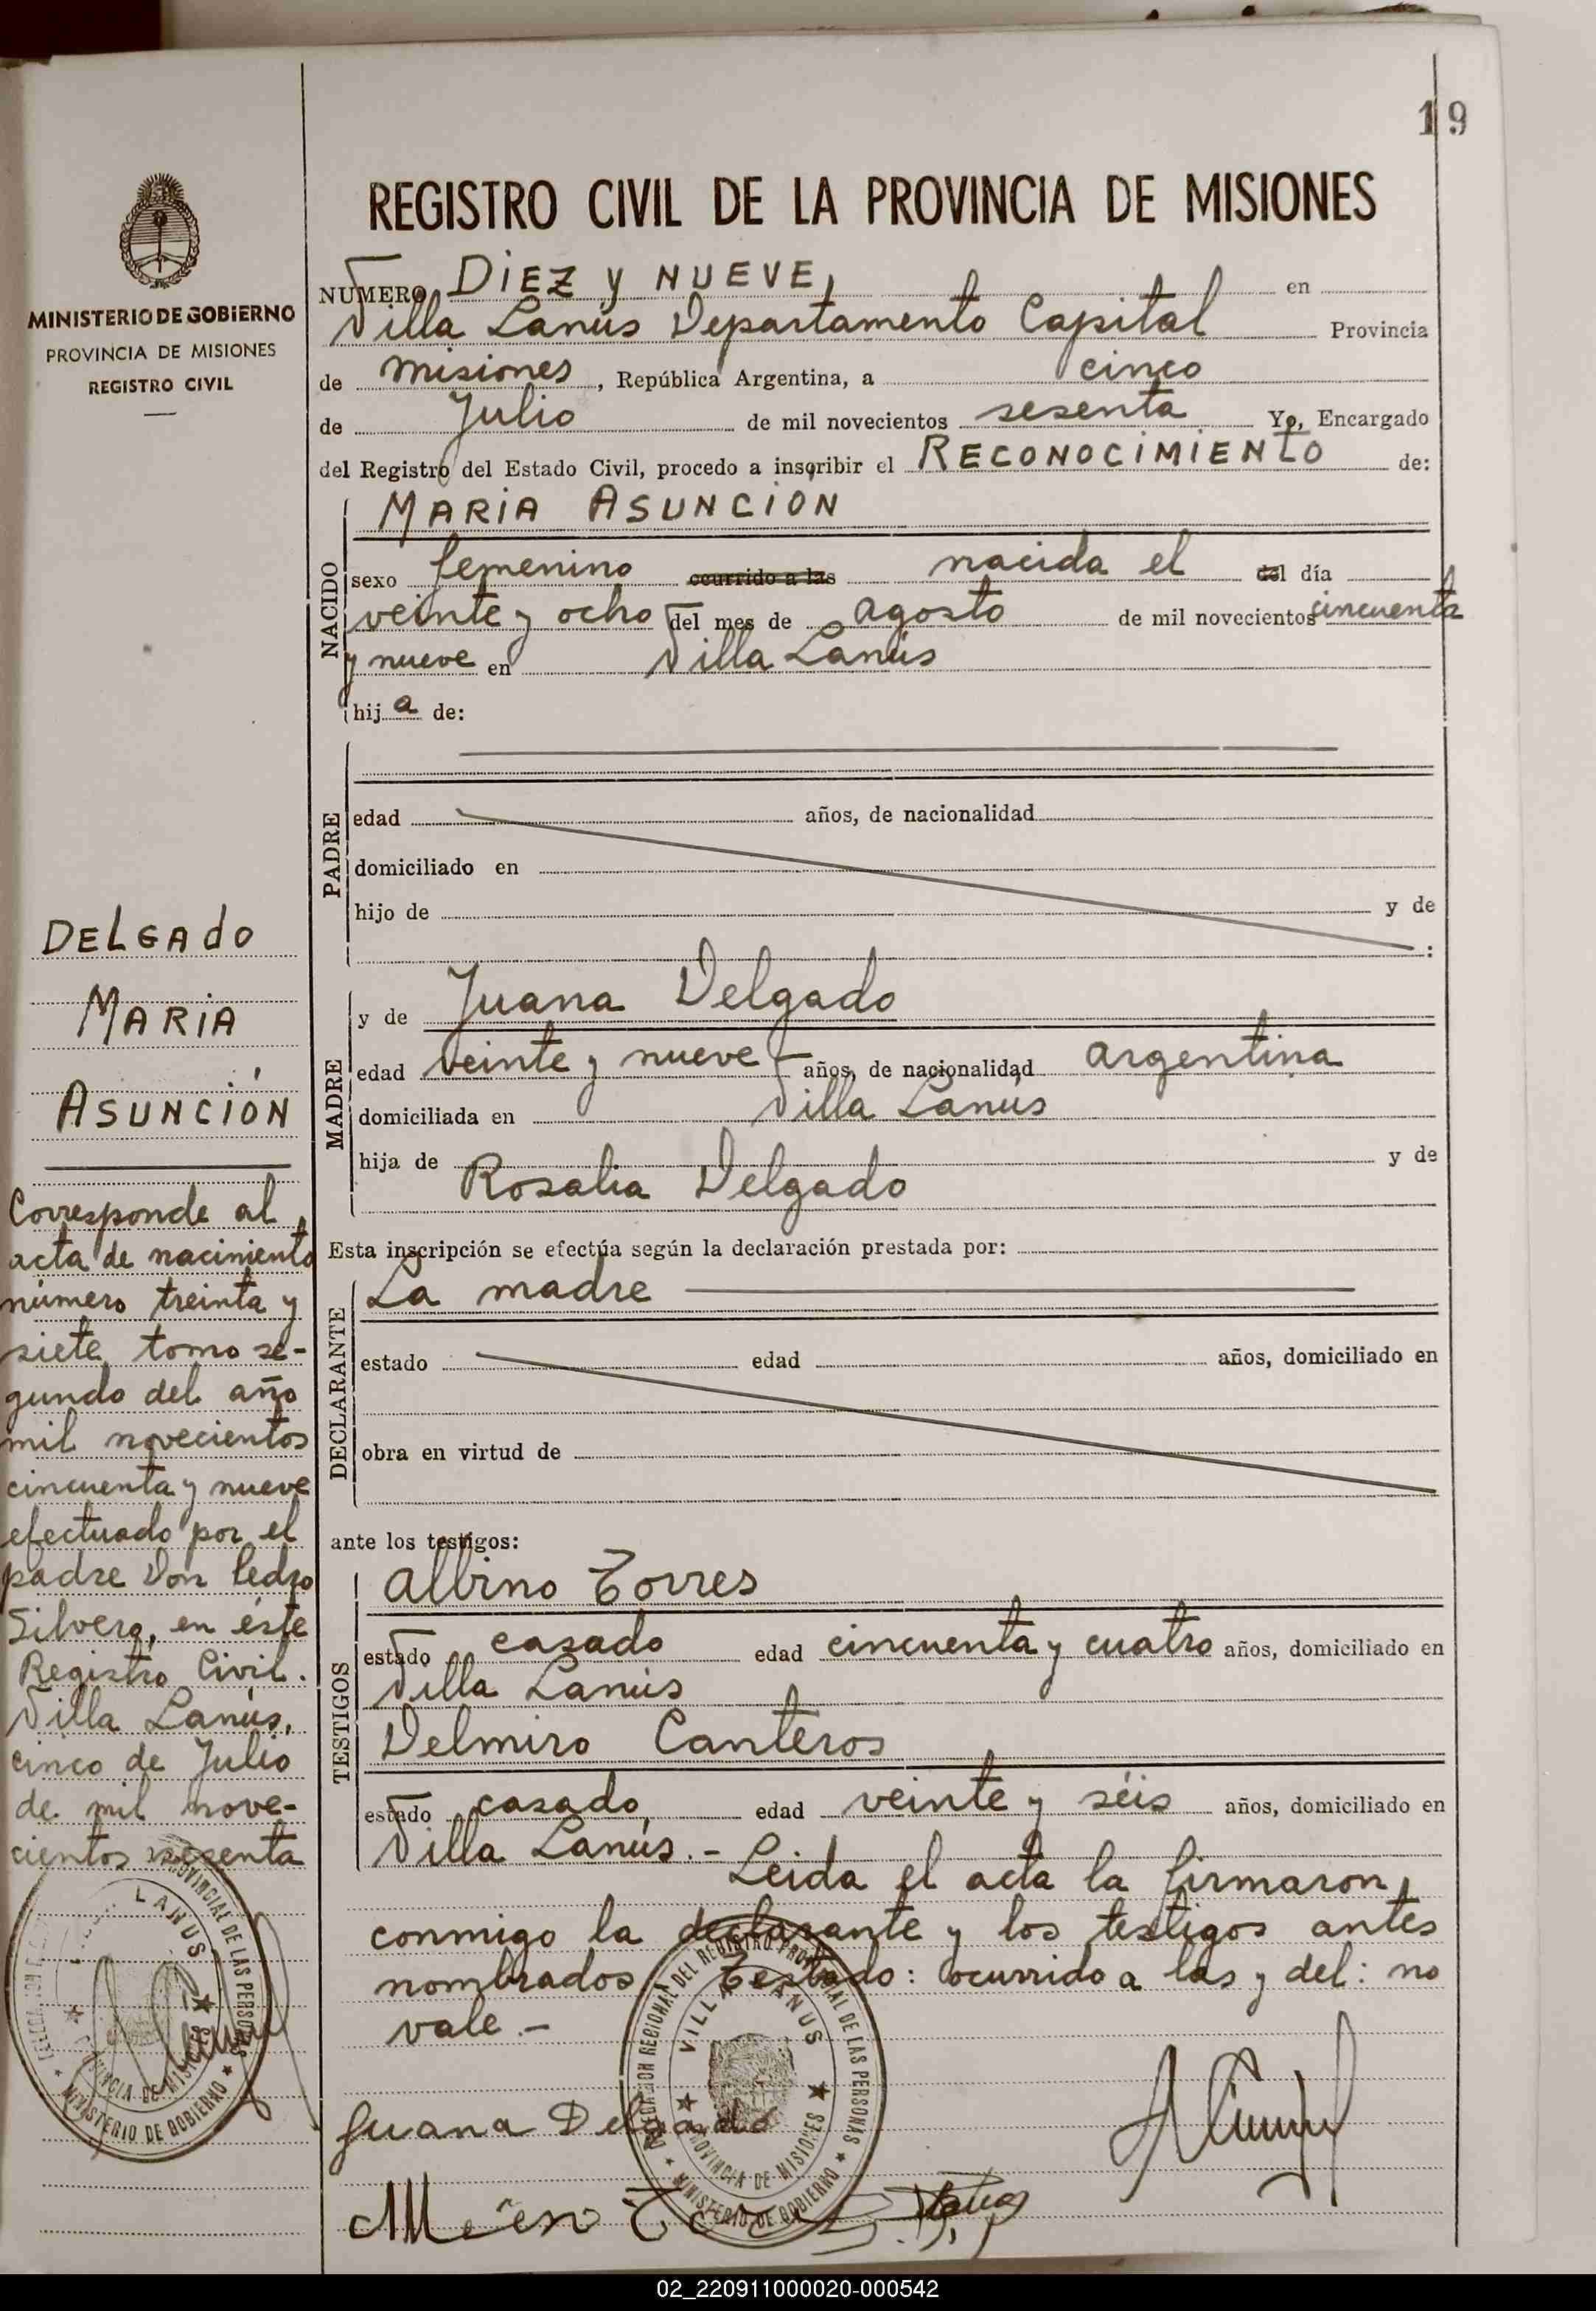 19
MINISTERIO DE GOBIERNO
PROVINCIA DE MISIONES
REGISTRO CIVIL
DELGADO
MARIA
ASUNCIÓN
Corresponde al
acta de nacimiento
número treinta y
siete, tomo se-
gundo del año
mil novecientos
cincuenta y nueve
efectuado por el
padre Don Pedro
Silvero, en éste
Registro Civil.
Villa Lanús,
cinco de Julio
de mil nove-
cientos sesenta
REGISTRO CIVIL DE LA PROVINCIA DE MISIONES
NUMERO DIEZ Y NUEVE, en
Villa Lanús Departamento Capital Provincia
de Misiones, República Argentina, a cinco
de Julio de mil novecientos sesenta Yo, Encargado
del Registro del Estado Civil, procedo a inscribir el RECONOCIMIENTO de:
NACIDO
MARIA ASUNCION
sexo femenino ocurrido a las nacida el del día
veinte y ocho del mes de agosto de mil novecientos cincuenta
y nueve en Villa Lanús
hija de:
PADRE
edad años, de nacionalidad
domiciliado en
hijo de y de
:
MADRE
y de Juana Delgado
edad veinte y nueve años, de nacionalidad argentina
domiciliada en Villa Lanús
hija de y de
Rosalia Delgado
Esta inscripción se efectúa según la declaración prestada por:
DECLARANTE
La madre
estado edad años, domiciliado en
obra en virtud de
ante los testigos:
TESTIGOS
Albino Torres
estado casado edad cincuenta y cuatro años, domiciliado en
Villa Lanús
Delmiro Canteros
estado casado edad veinte y séis años, domiciliado en
Villa Lanús.- Leida el acta la firmaron,
conmigo la declarante y los testigos antes
nombrados. Testado: ocurrido a las y del: no
vale.-
Juana Delgado
DELEGACION REGIONAL DEL REGISTRO PROVINCIAL DE LAS PERSONAS
VILLA LANUS
PROVINCIA DE MISIONES
MINISTERIO DE GOBIERNO
LANUS
PROVINCIAL DE LAS PERSONAS
PROVINCIA DE MISIONES
MINISTERIO DE GOBIERNO
02_220911000020-000542